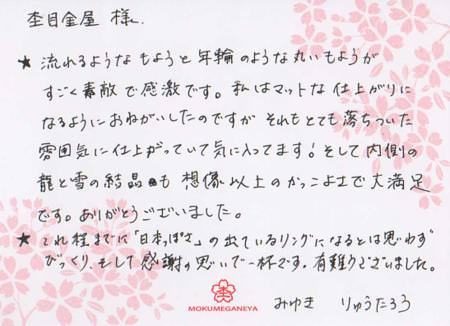 杢目金屋 様.
★ 流れるような もようと 年輪のような 丸いもようが
すごく素敵で感激です。私はマットな仕上がりに
なるようにおねがいしたのですが それもとても落ちついた
雰囲気に仕上がっていて気に入ってます！そして内側の
龍と雪の結晶も 想像以上のかっこよさで大満足
です。ありがとうございました。
★ これ程までに「日本っぽさ」の出ているリングになるとは思わず
びっくり、そして感謝の思いで一杯です。有難うございました。
MOKUMEGANEYA
みゆき りゅうたろう